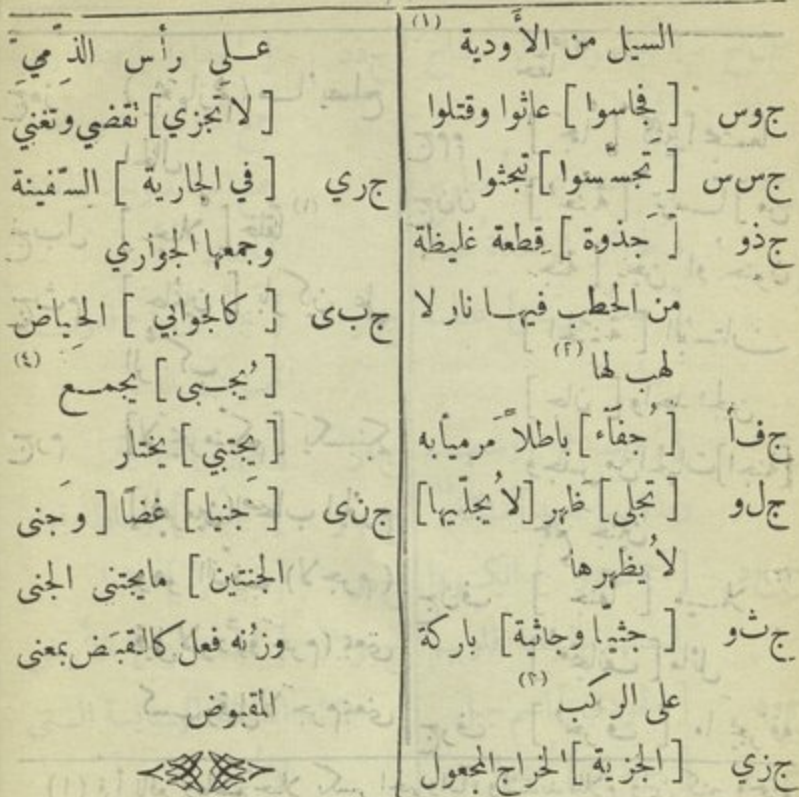 السيل من الأودية (١)
ج وس [فجاسوا] عاثوا وقتلوا
ج س س [تَجسَّسوا] تبحثوا
ج ذو [جَذوة] قِطعة غليظة
من الحطب فيها نار لا
لهب لها (٢)
ج ف أ [جُفآء] باطلاً مَرميأبه
ج ل و [تجلى] ظهر [لا يُجلّيها]
لا يُظهرها
ج ث و [جثيّا وجاثية] باركة
على الركب (٣)
ج زي [الجزية] الخراج المجعول
على رأس الذِّميّ
[لا تَجزي] تقضي وتغني
ج ري [في الجارية] السّفينة
وجمعها الجواري
ج ب ى [كالجوابي] الحِياض
[يُجبى] يجمع (٤)
[يجتبي] يختار
ج ن ى [جَنيا] غضّا [وجَنى
الجنتين] مايجتنى الجنى
وزنه فعل كالقبَض بمعنى
المقبوض